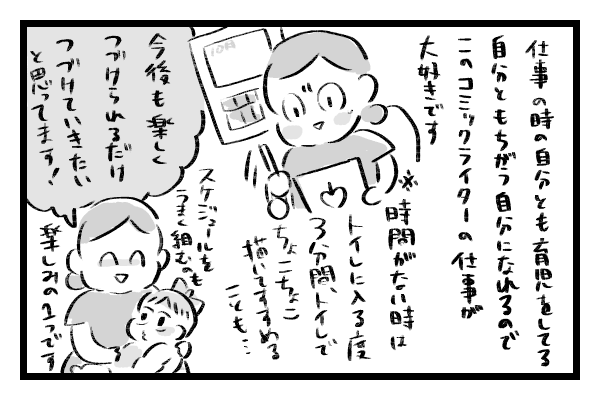 仕事の時の自分とも育児をしてる
自分ともちがう自分になれるので
このコミックライターの仕事が
大好きです
※時間がない時は
トイレに入る度
3分間、トイレで
ちょこちょこ
描いてすすめる
ことも…
10月
スケジュールを
うまく組むのも
楽しみの1つです
今後も楽しく
つづけられるだけ
つづけていきたい
と思ってます!